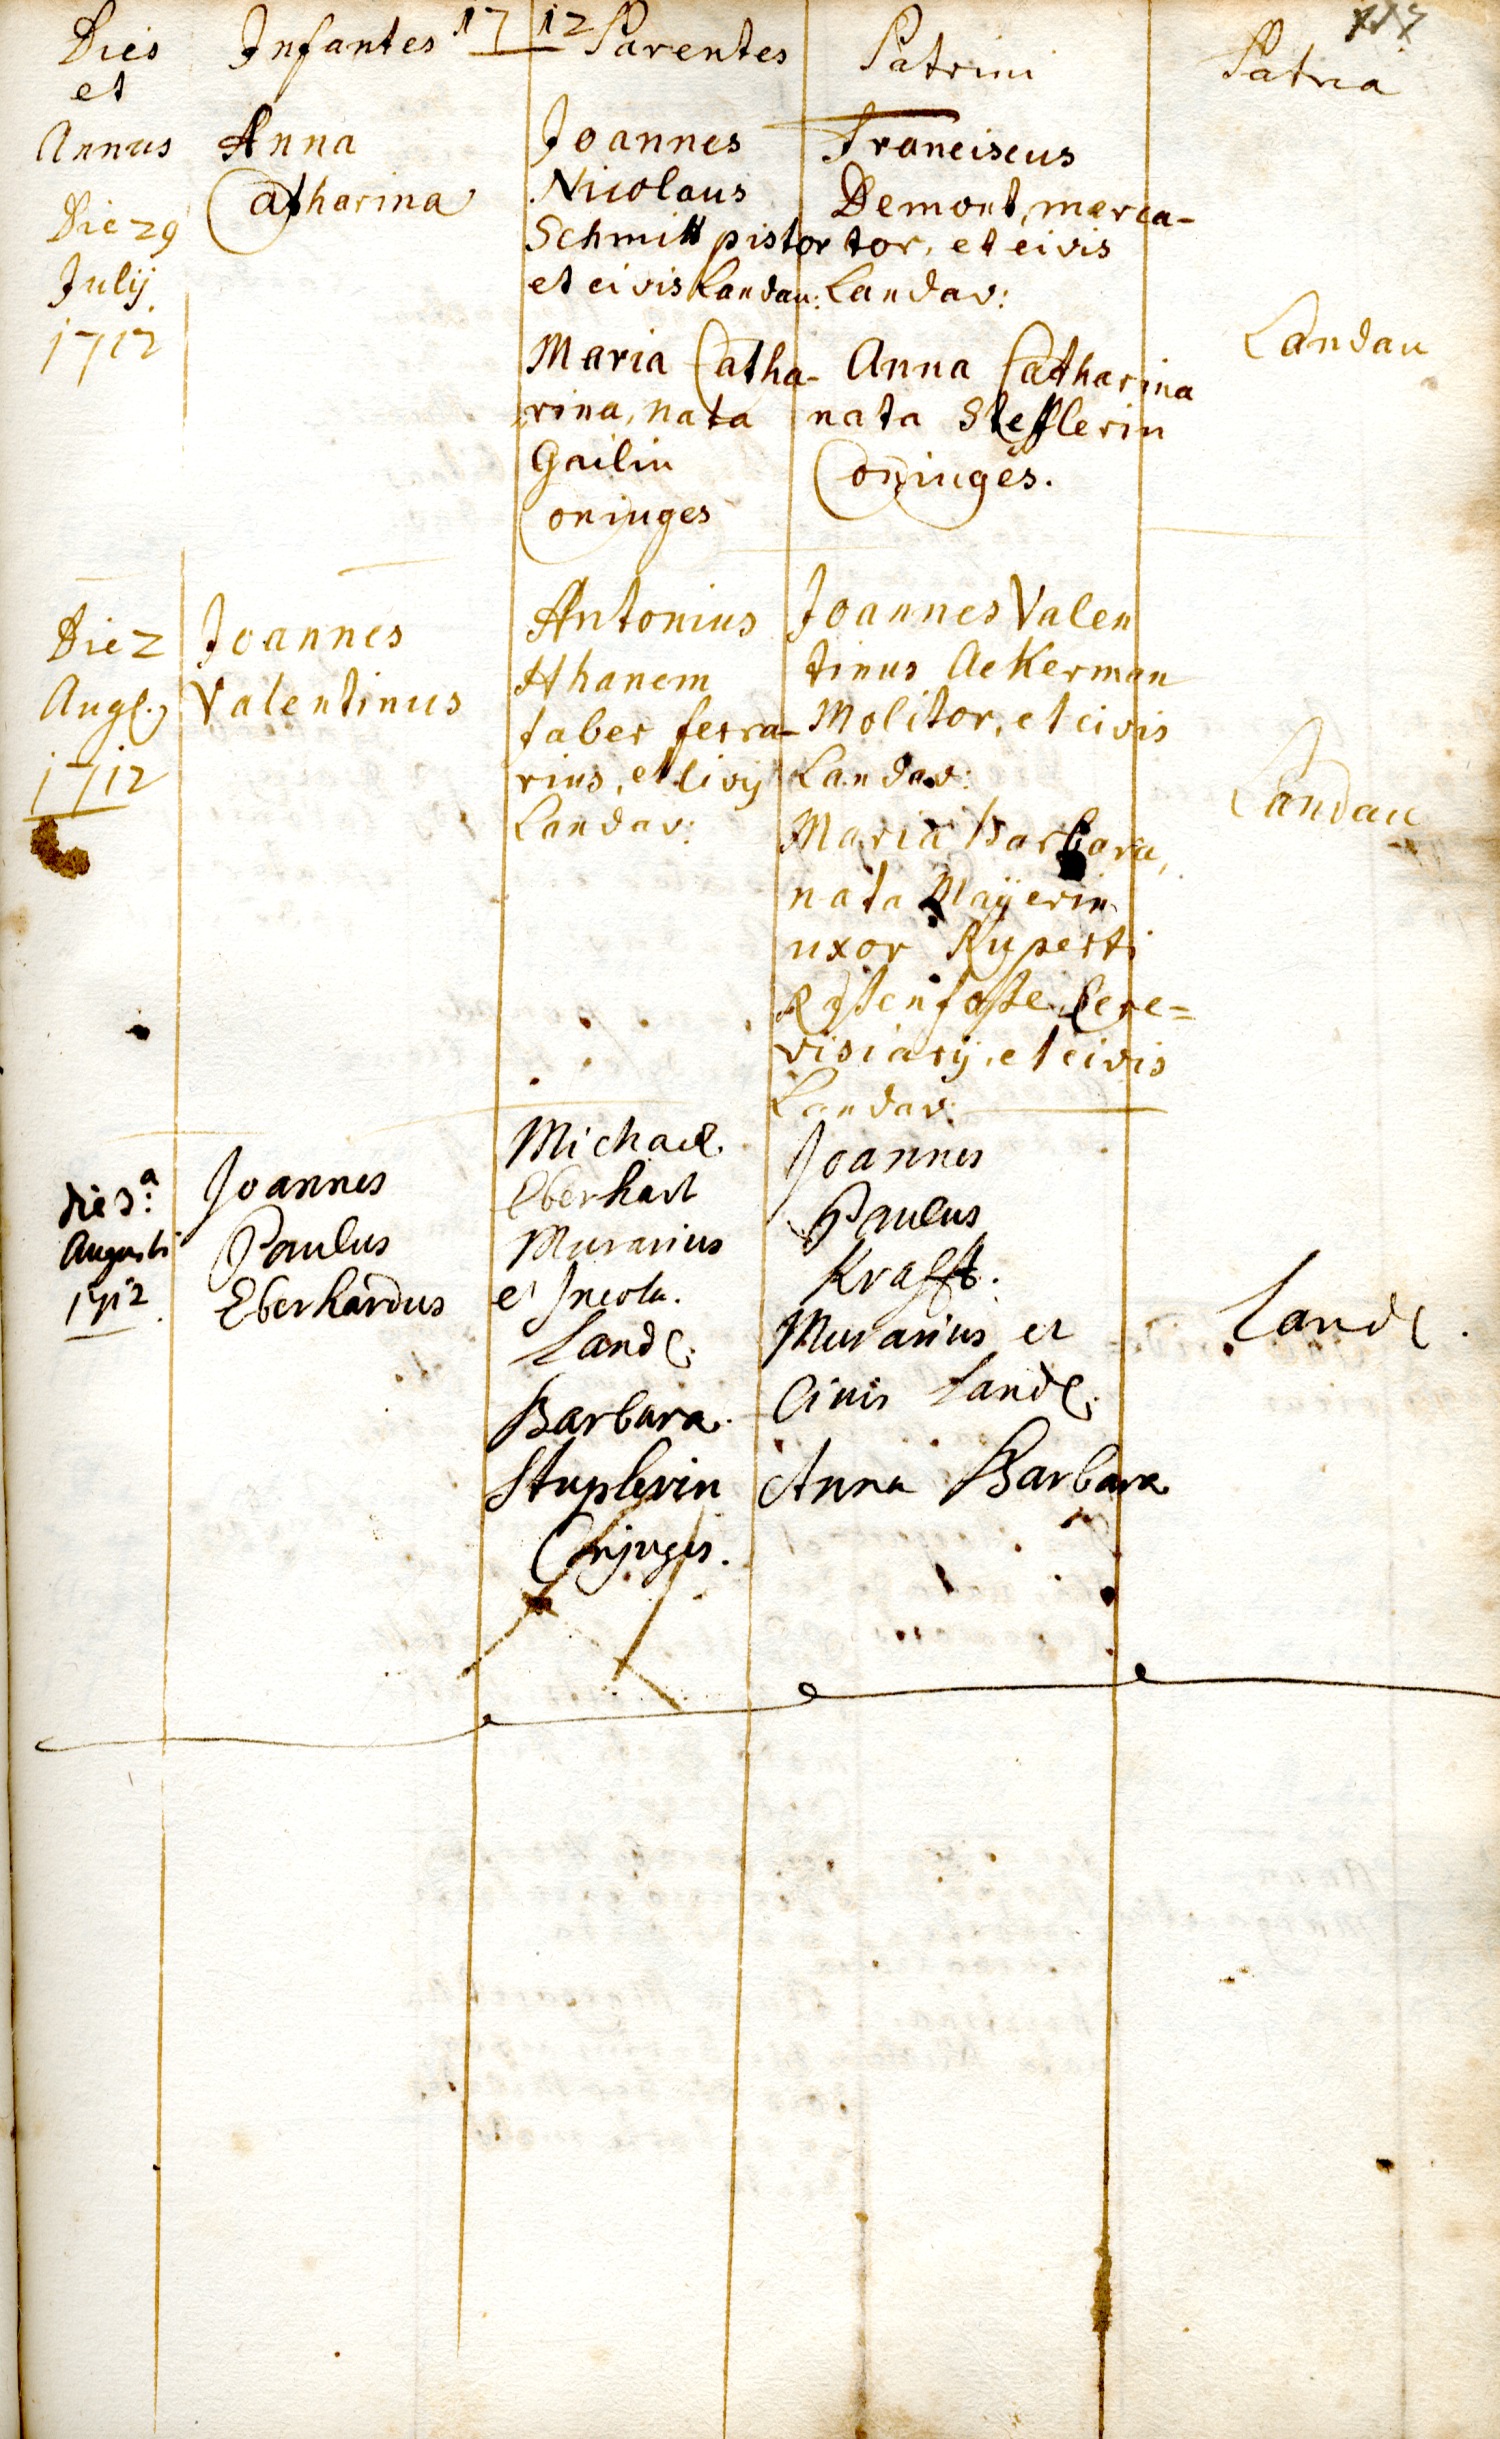 1712
117
Dies et Annus
Infantes
Parentes
Patrini
Patria
Die 29
Julij
1712
Anna
Catharina
Joannes
Nicolaus
Schmitt pistor
et civis Landau:
Maria Catha-
rina, nata
Gailin
Coniuges
Franciscus
Demont, merca-
tor, et civis
Landav:
Anna Catharina
nata Stefflerin
Coniuges.
Landau
Die 2
Aug.
1712
Joannes
Valentinus
Antonius
Hhanem
faber ferra-
rius, et civij
Landav:
Joannes Valen
tinus Ackerman
Molitor, et civis
Landav:
Maria Barbara,
nata Mayerin
uxor Ruperti
Cere=
visiarij, et civis
Landav:
Landau
die 3.a
Augusti
1712.
Joannes
Paulus
Eberhardus
Michael
Eberhart
Murarius
et Incola.
Land:
Barbara
Stuplerin
Conjuges.
Joannes
Paulus
Krafft.
Murarius et
Civis Land:
Anna Barbara
Land.